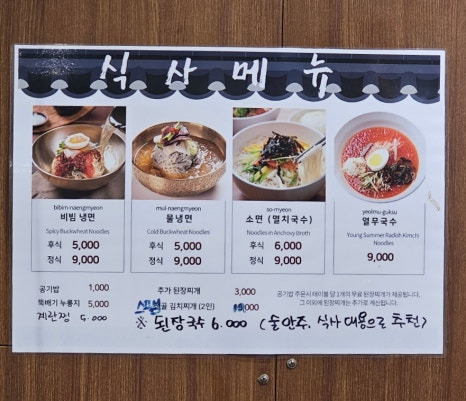 식사메뉴
bibim-naengmyeon
비빔 냉면
Spicy Buckwheat Noodles
후식 5,000
정식 9,000
mul-naengmyeon
물냉면
Cold Buckwheat Noodles
후식 5,000
정식 9,000
so-myeon
소면 (멸치국수)
Noodles in Anchovy Broth
후식 6,000
정식 9,000
yeolmu-guksu
열무국수
Young Summer Radish Kimchi
Noodles
9,000
공기밥 1,000
뚝배기 누룽지 5,000
계란찜 5,000
추가 된장찌개 3,000
골 김치찌개 (2인)
공기밥 주문시 테이블 당 1개의 무료 된장찌개가 제공됩니다.
그 이외에 된장찌개는 추가로 계산됩니다.
※ 된장국수 6.000 (술안주, 식사 대용으로 추천)